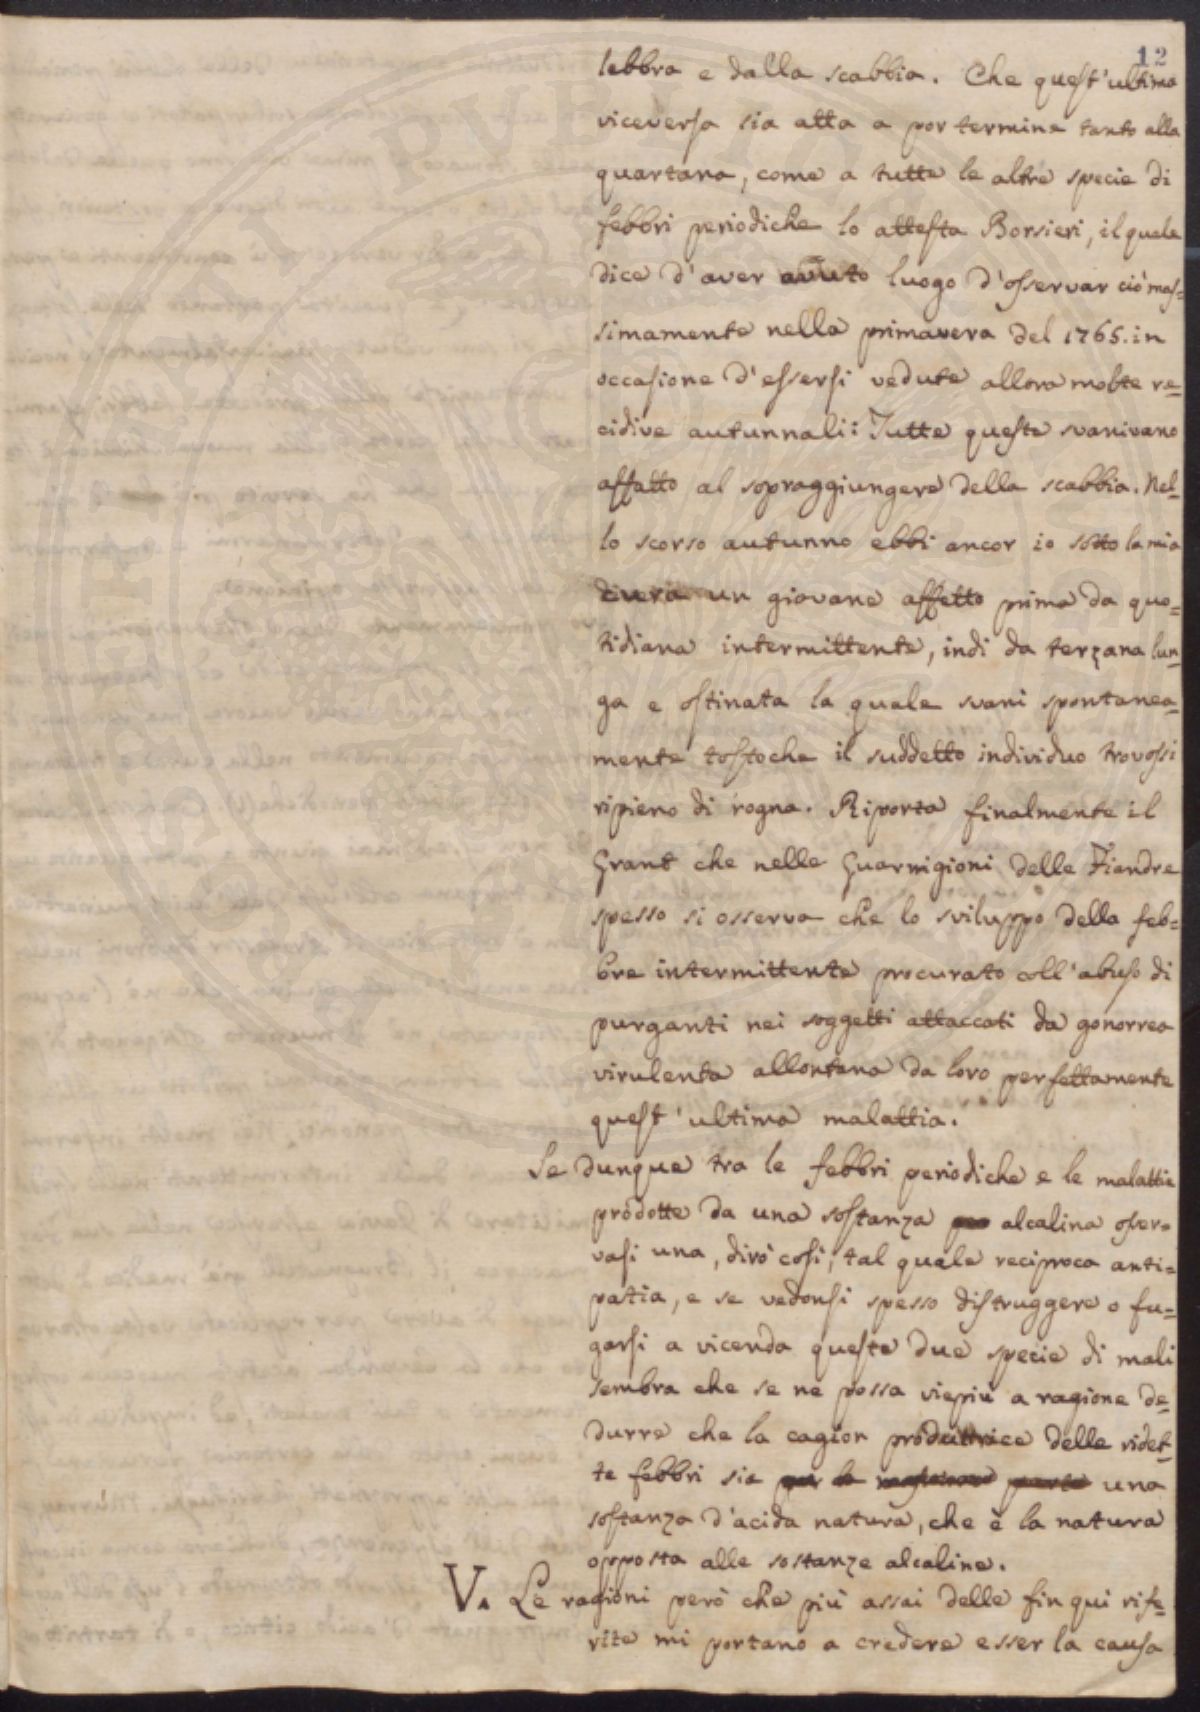 12
lebbra e dalla scabbia. Che quest'ultima
viceversa sia atta a por termine tanto alla
quartana, come a tutte le altre specie di
febbri periodiche lo attesta Borsieri, il quale
dice d'aver avuto luogo d'osservar ciò mas=
simamente nella primavera del 1765. in
occasione d'essersi vedute allora molte re=
cidive autunnali: Tutte queste svanivano
affatto al sopraggiungere della scabbia. Nel=
lo scorso autunno ebbi ancor io sotto la mia
cura un giovane affetto prima da quo=
tidiana intermittente, indi da terzana lun=
ga e ostinata la quale svanì spontanea=
mente tostoche il suddetto individuo trovossi
ripieno di rogna. Riporta finalmente il
Grant che nelle Guarnigioni delle Fiandre
spesso si osserva che lo sviluppo della feb=
bre intermittente procurato coll'abuso di
purganti nei soggetti attaccati da gonorrea
virulenta allontana da loro perfettamente
quest'ultima malattia.
Se dunque tra le febbri periodiche e le malattie
prodotte da una sostanza alcalina osser=
vasi una, dirò così, tal quale reciproca anti=
patia, e se vedonsi spesso distruggere o fu=
garsi a vicenda queste due specie di mali
sembra che se ne possa viepiù a ragione de=
durre che la cagion produttrice delle ridet=
te febbri sia una
sostanza d'acida natura, che è la natura
opposta alle sostanze alcaline.
V. Le ragioni però che più assai delle fin qui rife=
rite mi portano a credere esser la causa